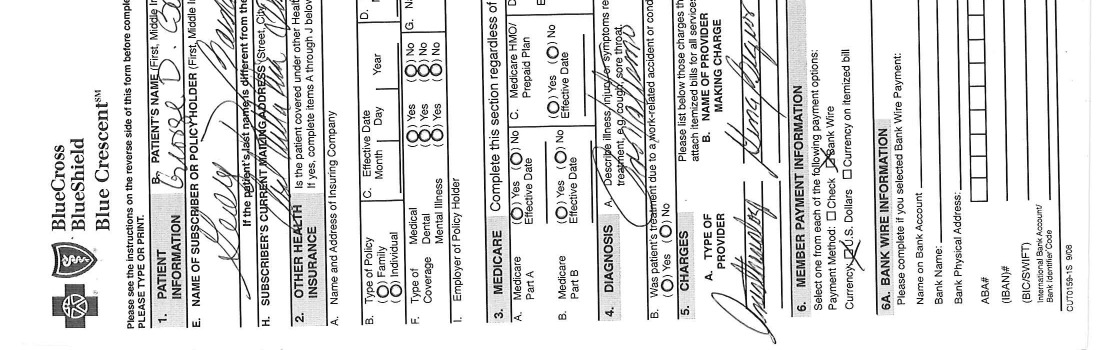 BlueCross
BlueShield
Blue Crescent℠
Please see the instructions on the reverse side of this form before comple
PLEASE TYPE OR PRINT.
1. PATIENT INFORMATION
B. PATIENT'S NAME (First, Middle In
E. NAME OF SUBSCRIBER OR POLICYHOLDER (First, Middle In
If the patient's last name is different from the
H. SUBSCRIBER'S CURRENT MAILING ADDRESS (Street, City
2. OTHER HEALTH INSURANCE
Is the patient covered under other Healt
If yes, complete items A through J below
A. Name and Address of Insuring Company
B. Type of Policy
(O) Family
(O) Individual
C. Effective Date
Month Day Year
D.
F. Type of Coverage
Medical (O) Yes (O) No
Dental (O) Yes (O) No
Mental Illness (O) Yes (O) No
G. N
I. Employer of Policy Holder
3. MEDICARE Complete this section regardless of
A. Medicare Part A
(O) Yes (O) No
Effective Date
C. Medicare HMO/
Prepaid Plan
(O) Yes (O) No
Effective Date
B. Medicare Part B
(O) Yes (O) No
Effective Date
4. DIAGNOSIS
A. Describe illness, injury or symptoms re
treatment, e.g. cough, sore throat.
B. Was patient's treatment due to a work-related accident or cond
(O) Yes (O) No
5. CHARGES
Please list below those charges th
attach itemized bills for all services
A. TYPE OF PROVIDER
B. NAME OF PROVIDER
MAKING CHARGE
6. MEMBER PAYMENT INFORMATION
Select one from each of the following payment options:
Payment Method: Check Bank Wire
Currency U.S. Dollars Currency on itemized bill
6A. BANK WIRE INFORMATION
Please complete if you selected Bank Wire Payment:
Name on Bank Account
Bank Name:
Bank Physical Address:
ABA#
(IBAN)#
(BIC/SWIFT)
International Bank Account/
Bank Identifier Code
CUT0159-1S 9/08